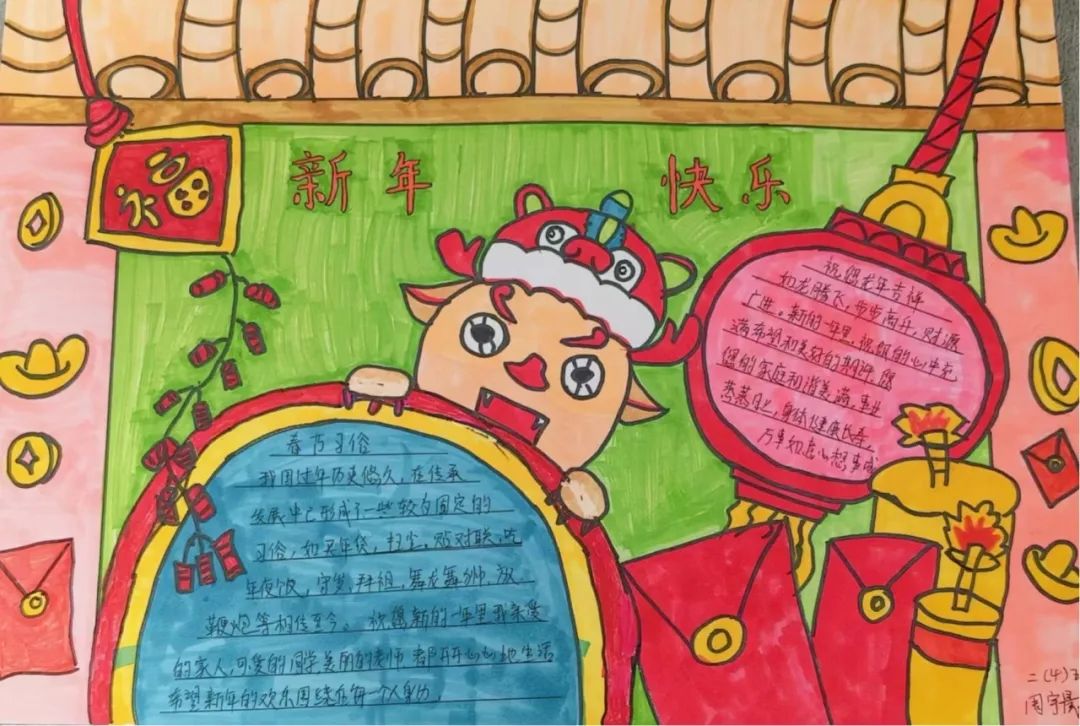 福
新年 快乐
祝您龙年吉祥
如龙腾飞，步步高升，财源
广进。新的一年里，祝愿的心中充
满希望和美好的期许，愿
您的家庭和谐美满，事业
蒸蒸日上，身体健康长寿，
万事如意心想事成
春节习俗
我国过年历史悠久，在传承
发展中已形成了一些较为固定的
习俗，如买年货，扫尘，贴对联，吃
年夜饭，守岁，拜祖，舞龙舞狮，放
鞭炮等相传至今。祝愿新的一年里我亲爱
的家人，可爱的同学美丽的老师都开开心心地生活
希望新年的欢乐围绕在每一个人身边。
二(4)
周宇